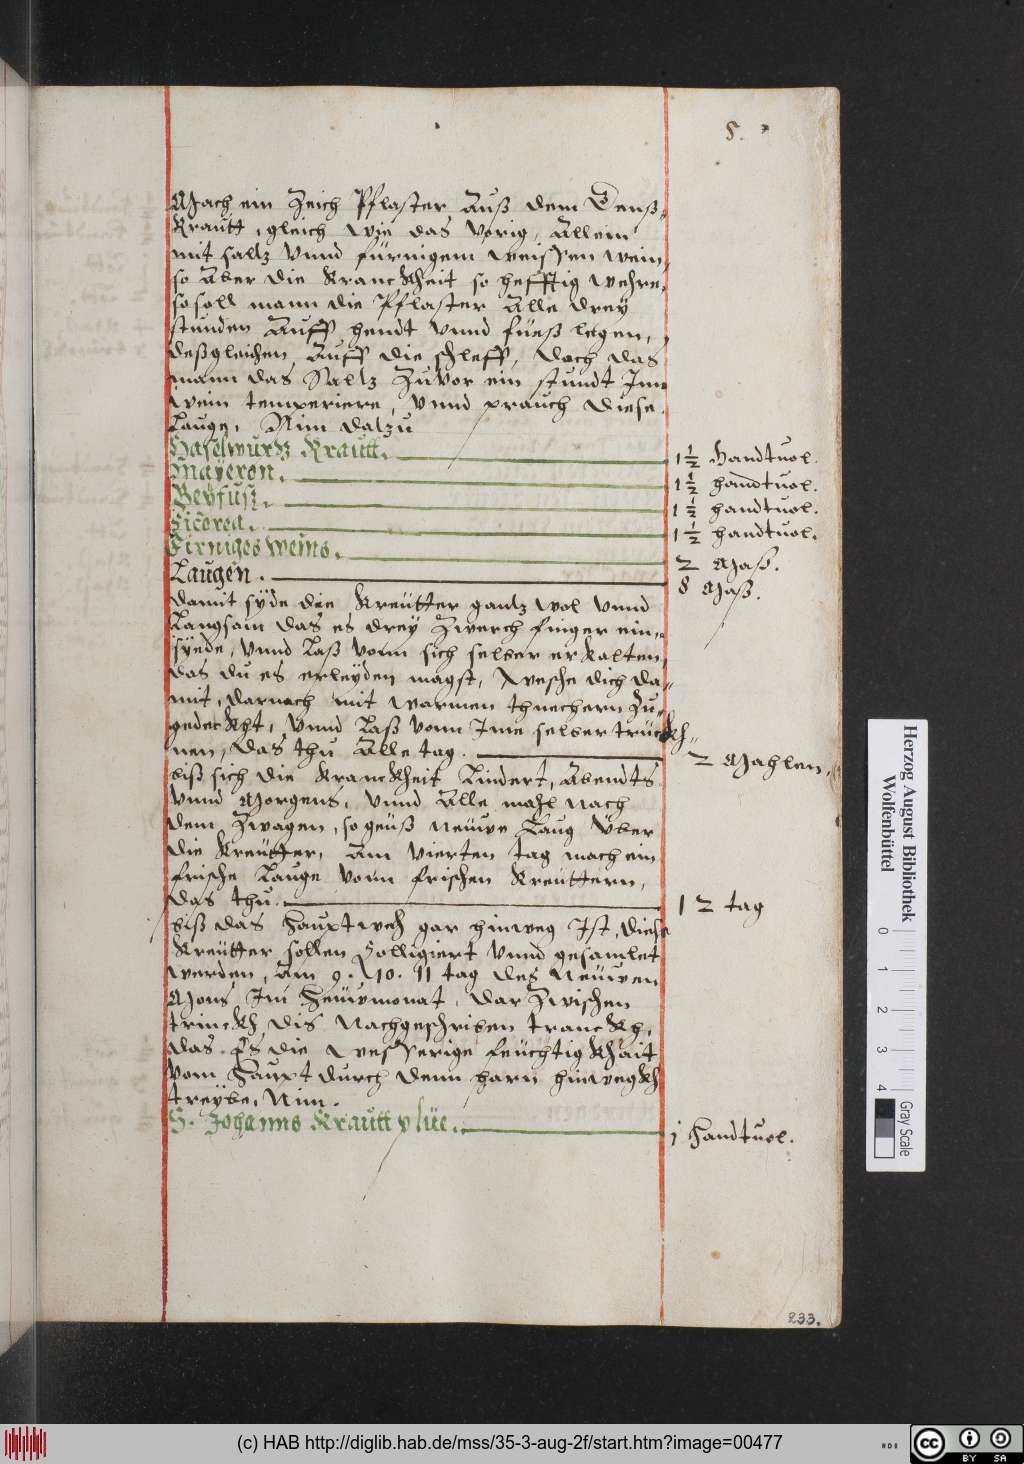 8.
Mach ein Zeich Pflaster Auß dem Senff-
Krautt, gleich wie das vorig, Allein
mit saltz vnnd fürnigem weissen wein,
so Aber die Kranckheit so hefftig wehre,
so soll mann die Pflaster Alle drey
stunden Auff hendt vnnd füeß legen,
deßgleichen Auff die schleff, doch das
mann das Saltz Zuvor ein stundt Inn
wein temperiere, vnnd prauch diese
Laugen, Nim datzu
Haselwurtz Krautt. 1½ Handtuol.
Mayeron. 1½ handtuol.
Beyfusz. 1½ handtuol.
Zicorea. 1½ handtuol.
Firniges Weins. 2 Maß.
Laugen. 8 Maß.
damit syde die Kreütter gantz wol vnnd
Langsam das es drey Zwerch finger ein-
syede, vnnd Laß vonn sich selber erkalten,
das du es erleyden magst, Wesche dich da-
mit, darnach mit warmen thuechern Zu-
gedeckht, vnnd Laß vonn Ime selber trückh-
nen, das thu Alle tag. 2 Mahlen,
biß sich die Kranckheit Lindert, Abendts
vnnd Morgens, vnnd Alle mahl nach
dem Zwagen, so geüß neüwe Laug Vber
die Kreütter, Am Vierten tag mach ein
frische Lauge vonn frischen Kreüttern,
das thu. 12 tag
biß das Hauptweh gar hinweg Ist, diese
Kreütter sollen Colligiert vnnd gesamlet
werden, Am 9. 10. 11 tag des Neüwen
Mons Im Heüwmonat, dar Zwischen
trinckh dis Nachgeschriben tranckh,
das Es die Wesserige feüchtigkhait
vom Haupt durch denn harn hinwegkh
treybe, Nim.
S. Johanns Krautt plüe. j Handtuol.
233.
Herzog August Bibliothek
Wolfenbüttel
0 1 2 3 4
Gray Scale
(c) HAB http://diglib.hab.de/mss/35-3-aug-2f/start.htm?image=00477
cc BY SA